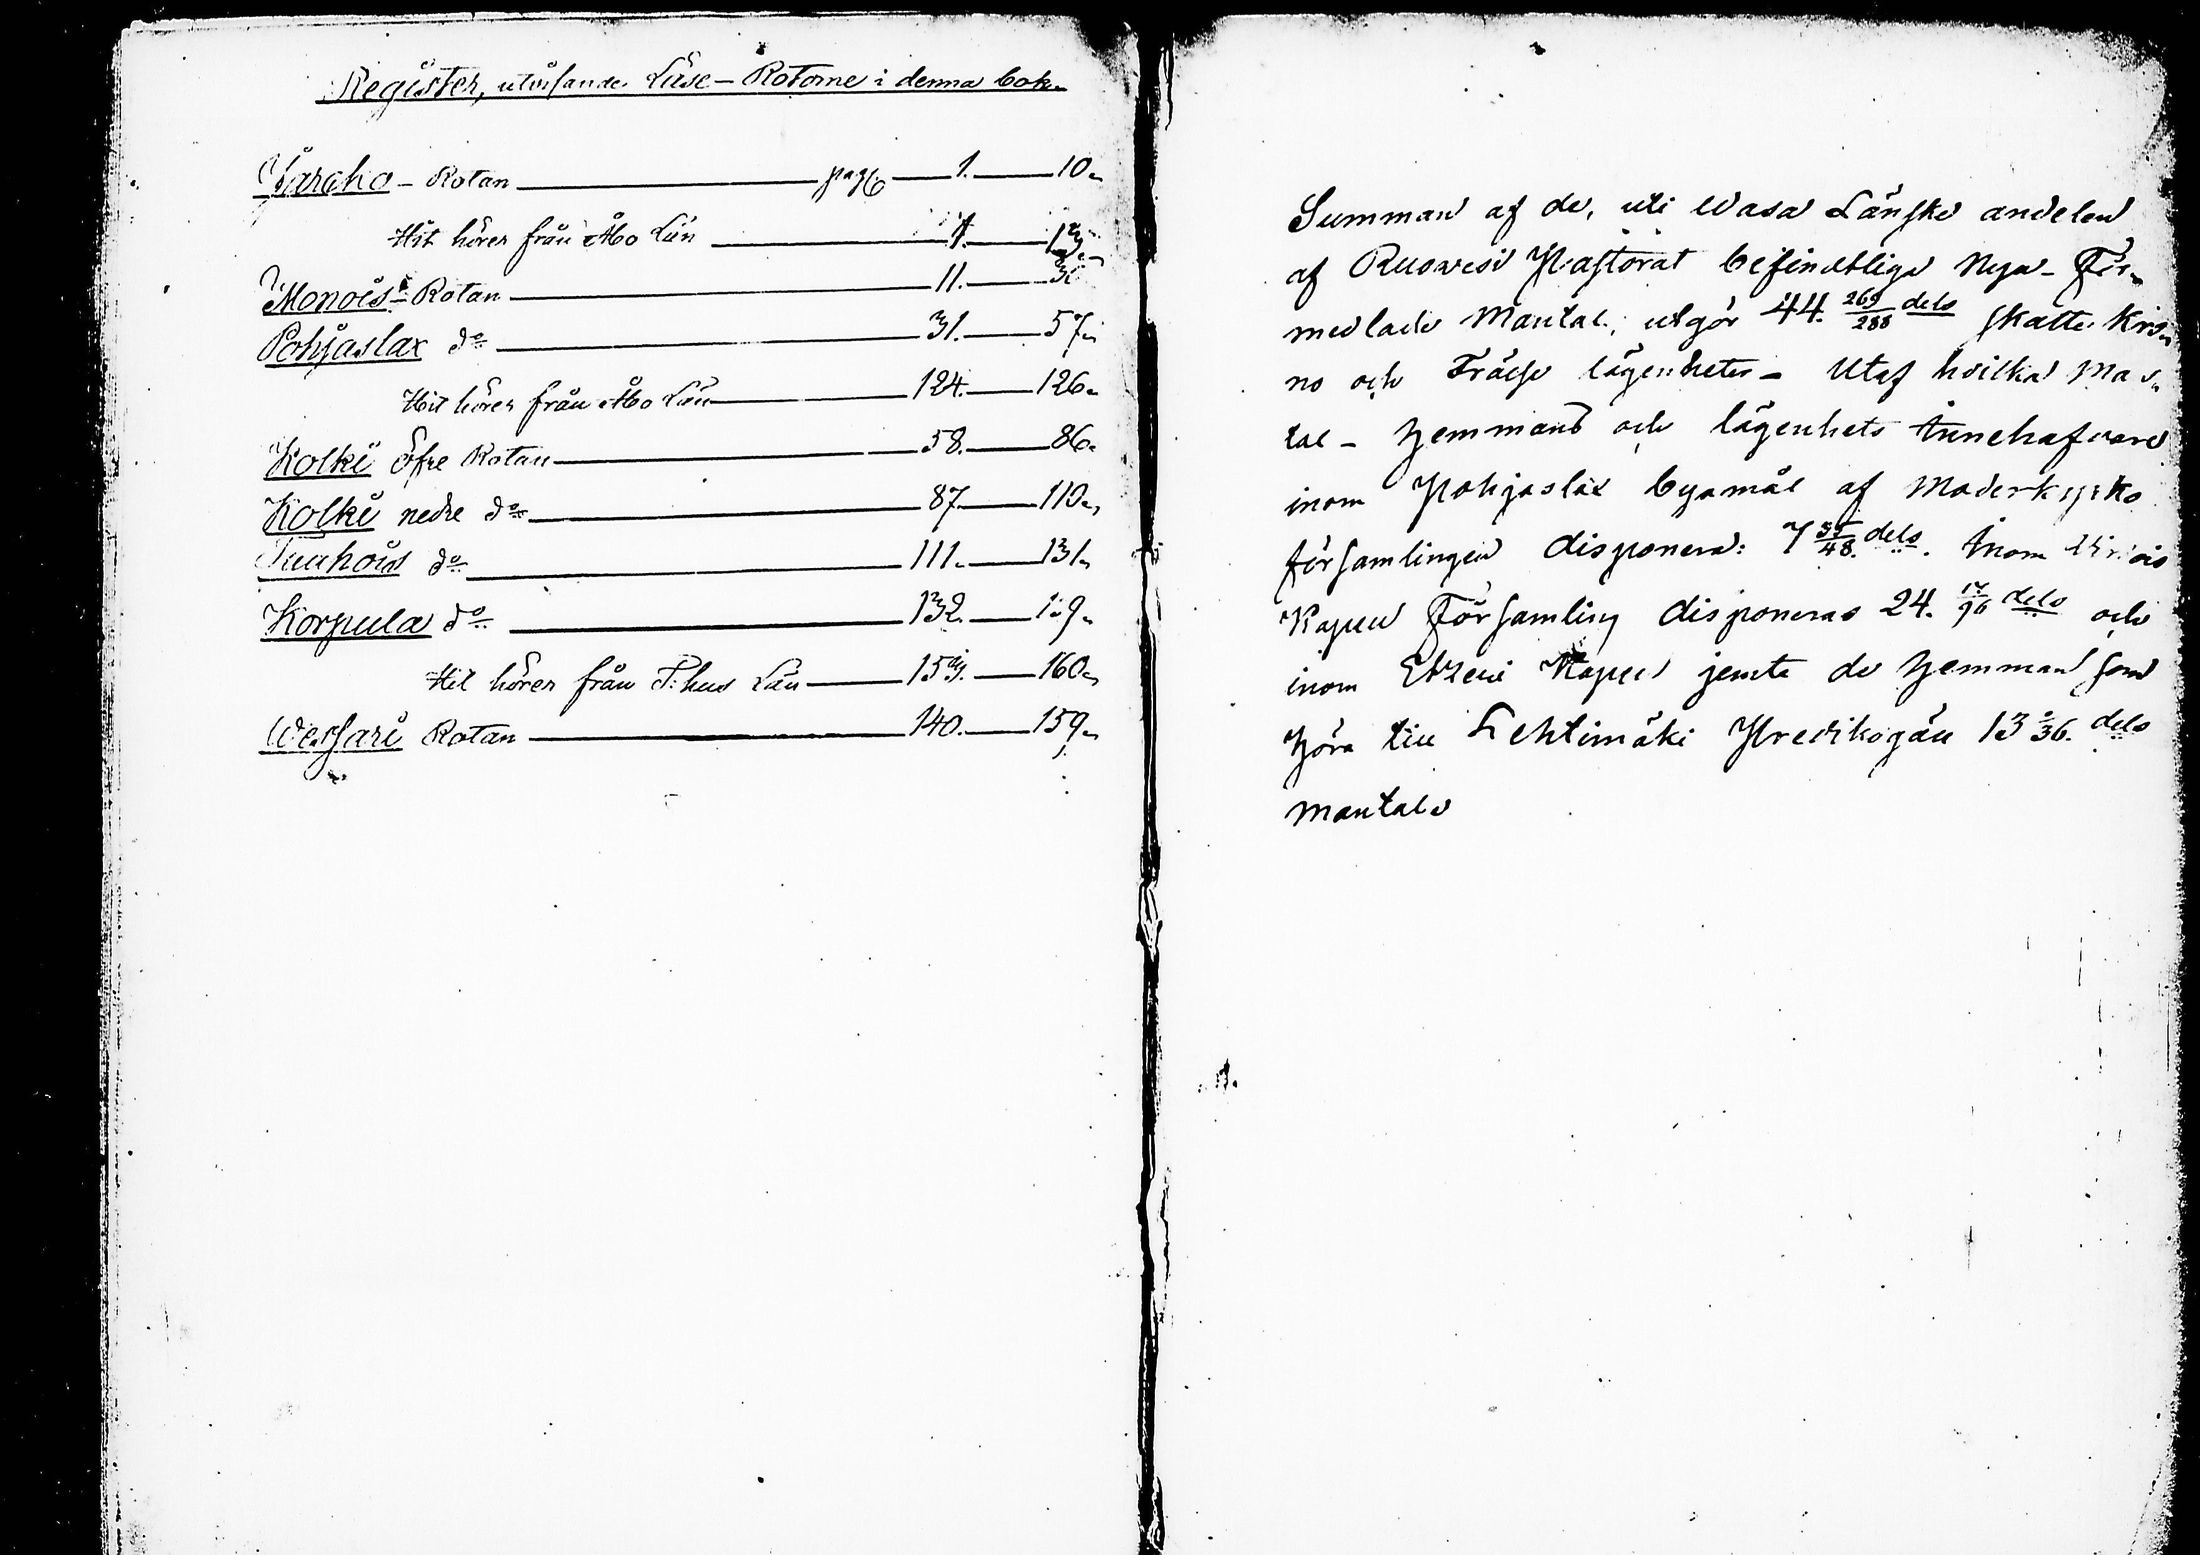 Register, utvisande Läse-Rotorne i denna bok.
Jäscho - Rotan pag: 1. 10.
Hit hörer från Åbo Län 1. 13.
Monois - Rotan 11. 30
Pohjaslax do 31. 57.
Hit hörer från Åbo Län 124. 126.
Kolki öfre Rotan 58. 86.
Kolki nedre do 87. 110.
Tuuhois do 111. 131.
Korpula do 132. 139.
Hit hörer från T:hus Län 159. 160.
Wessari Rotan 140. 159.
Summan af de, uti Wasa Länske andelen
af Ruovesi Pastorat befinteliga Nya-För-
medlade Mantal, utgör 44. 269/288 dels skatte Kro-
no och Frälse lägenheter - Utaf hvilka Man-
tal - Hemmans och lägenhets Innehafvare
inom Pohjaslax byamål af Moderkyrko
församlingen disponera: 7 35/48. dels. Inom Virdois
Kapell Församling disponeras 24. 17/96 dels och
inom Etzeri Kapell jemte de Hemman som
höra till Lehtimäki Predikogäll 13 /36. dels
Mantal